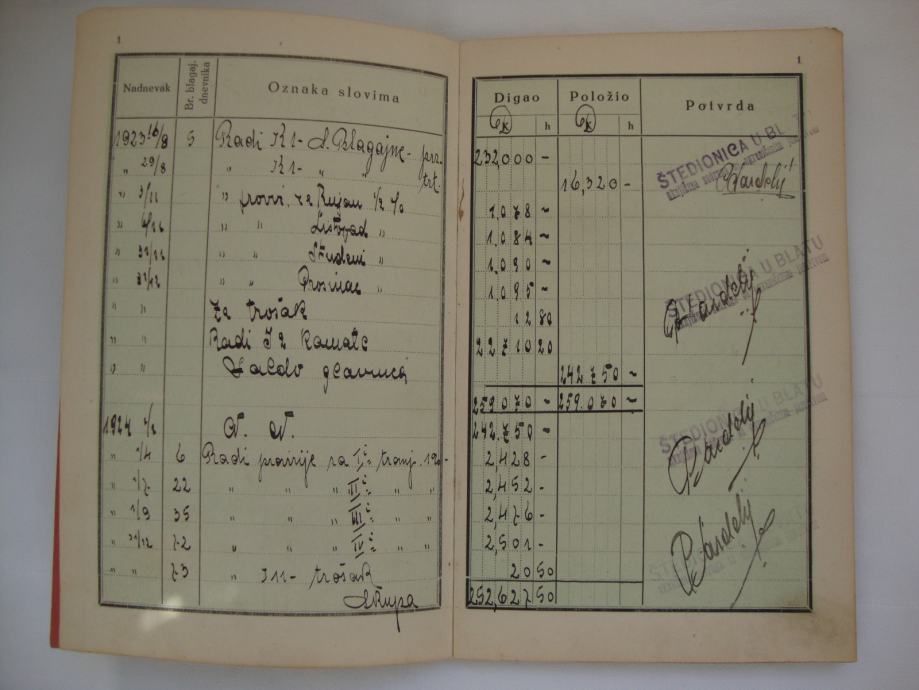 1
1
Nadnevak Br. blagaj. dnevnika Oznaka slovima Digao Položio Potvrda
K h K h
1923 16/8 5 Radi K1- S. Blagajne- 232,000 -
" 29/8 " K1- " " 16,320 -
ŠTEDIONICA U BL
" " provvi. za Rujan ½ % 1.078 -
" " " Listopad " 1.084 -
" 31/12 " " Studeni " 1.090 -
" 31/12 " " Prosinac " 1.095 -
ŠTEDIONICA U BLATU
" " Za trošak 12 80
" " Radi I2 Kamate 22.710 20
" " Saldo glavnica 242.750 -
259.070 - 259.070 -
1924 N. N. 242.750 -
ŠTEDIONICA U BLATU
" 1/4 6 Radi provizije za I. tromj. 2,428 -
" 1/7 22 " " " II. " " 2,452 -
" 1/9 35 " " " III. " " 2,476 -
" 31/12 72 " " " IV. " " 2,501 -
" " 73 " I11- trošak 20 50
Skupa 252,627 50